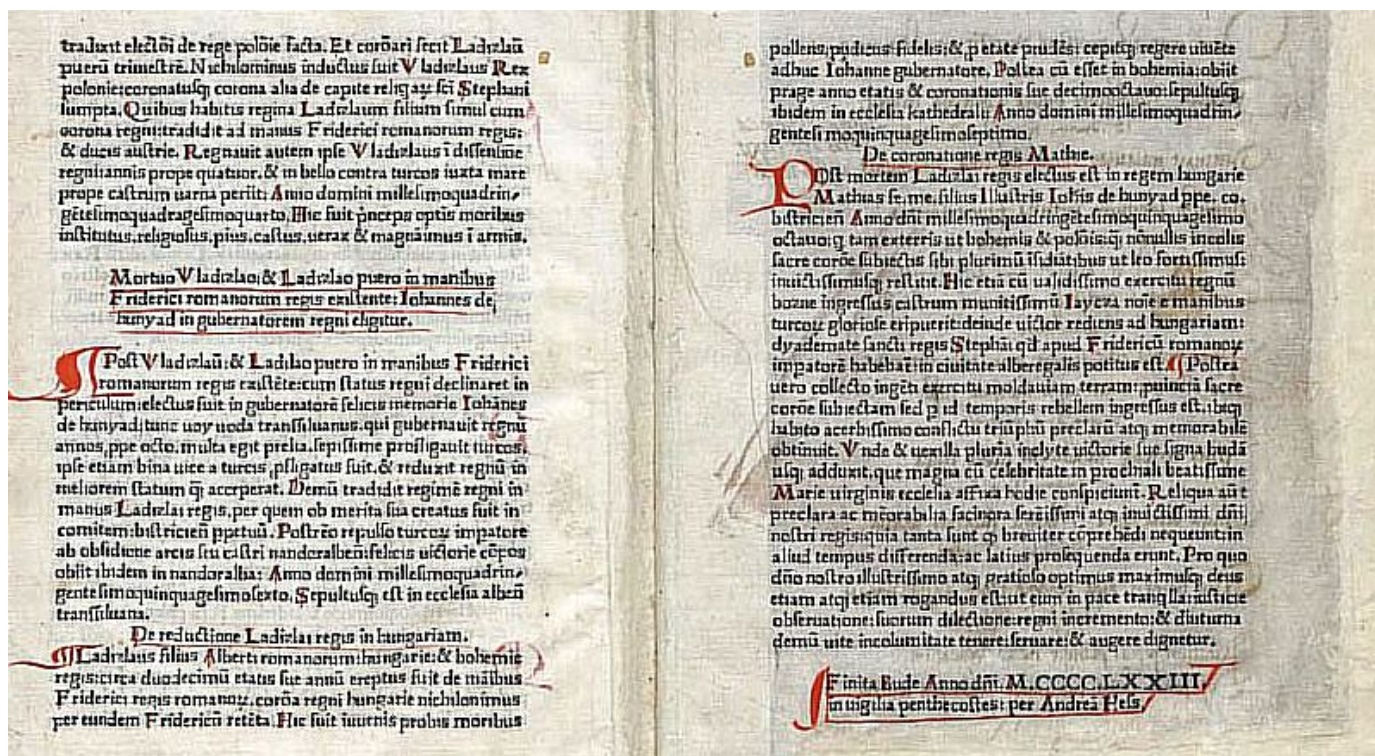 traduxit electōi de rege polōie facta. Et corōari fecit Ladizlaū
puerū trimestrē. Nichilominus inductus fuit Vladizlaus Rex
polonie: coronatusq; corona alia de capite religaꝝ sc̄i Stephani
sumpta. Quibus habitis regina Ladizlaum filium simul cum
corona regni: tradidit ad manus Friderici romanorum regis:
& ducis austrie. Regnauit autem ipse Vladizlaus ī dissensiōe
regni: annis prope quatuor. & in bello contra turcos iuxta mare
prope castrum uarna periit: Anno domini millesimoquadrin-
gētesimoquadragesimoquarto. Hic fuit p̄nceps optīs moribus
institutus. religiosus. pius. castus. uerax & magnāimus ī armis.
Mortuo Vladizlao: & Ladizlao puero in manibus
Friderici romanorum regis existente: Iohannes de
hunyad in gubernatorem regni eligitur.
Post Vladizlaū: & Ladizlao puero in manibus Friderici
romanorum regis exīstēte: cum status regni declinaret in
periculum: electus fuit in gubernatorē felicis memorie Iohānes
de hunyad: tunc uoyuoda transsiluanus. qui gubernauit regnū
annos, ppe octo. multa egit prelia. sepissime profligauit turcos.
ipse etiam bina uice a turcis, pfligatus fuit. & reduxit regnū in
meliorem statum q̄ acceperat. Demū tradidit regimē regni in
manus Ladizlai regis. per quem ob merita sua creatus fuit in
comitem: bistricieñ ppetuū. Postrēo repulso turcoꝝ impatore
ab obsidione arcis seu castri nandoralbeñ: felicis uictorie cōpos
obiit ibidem in nandoralba: Anno domini millesimoquadrin-
gentesimoquinquagesimosexto. Sepultusq; est in ecclesia albeñ
transsiluana.
De reductione Ladizlai regis in hungariam.
Ladizlaus filius Alberti romanorum: hungarie: & bohemie
regis: circa duodecimū etatis sue annū ereptus fuit de māibus
Friderici regis romanoꝝ. corōa regni hungarie nichilominus
per eundem Fridericū retēta. Hic fuit iuuenis probis moribus
pollens: pudicus: fidelis: & p etate prudēs: cepitq; regere uiuēte
adhuc Iohanne gubernatore. Postea cū esset in bohemia: obiit
prage anno etatis & coronationis sue decimooctauo: sepultusq;
ibidem in ecclesia kathedrali: Anno domini millesimoquadrin-
gentesimoquinquagesimoseptimo.
De coronatione regis Mathie.
Post mortem Ladizlai regis electus est in regem hungarie
Mathias se. me. filius Illustris Iohīs de hunyad ppe. co.
bistricieñ Anno dñi millesimoquadringētesimoquinquagesimo
octauo: q tam exterris ut bohemis & polōis: q̄ nōnullis incolis
sacre corōe subiectis sibi plurimū īsidiātibus ut leo fortissimus
inuictissimusq; restitit. Hic etiā cū ualidissimo exercitu regnū
bozne ingressus castrum munitissimū Iaycza noīe e manibus
turcoꝝ gloriose eripuerit: deinde uictor rediens ad hungariam:
dyademate sancti regis Stephāi qd̄ apud Fridericū romanoꝝ
impatorē habebat: in ciuitate alberegalis potitus est. Postea
uero collecto ingēti exercitu moldauiam, terram: puinciā sacre
corōe subiectam sed p id temporis rebellem ingressus est. ibiq;
habito acerbissimo conflictu triūphū preclarū atq; memorabilē
obtinuit. Vnde & uexilla pluria inclyte uictorie sue signa budā
usq; adduxit. que magna cū celebritate in prochiali beatissime
Marie uirginis ecclesia affixa hodie conspiciunt. Reliqua aūt
preclara ac mēorabilia facinora serēissimi atq; inuictissimi dñi
nostri regis: quia tanta sunt q̄ breuiter cōprehēdi nequeunt: in
aliud tempus differenda: ac latius prosequenda erunt. Pro quo
dño nostro illustrissimo atq; gratioso optimus maximusq; deus
etiam atq; etiam rogandus est: ut eum in pace tranq̄lla: iusticie
obseruatione: suorum dilectione: regni incremento: & diuturna
demū uite incolumitate tenere: seruare: & augere dignetur.
Finita Bude Anno dñi. M.CCCC.LXXIII.
in uigilia penthecostes: per Andreā Hess.